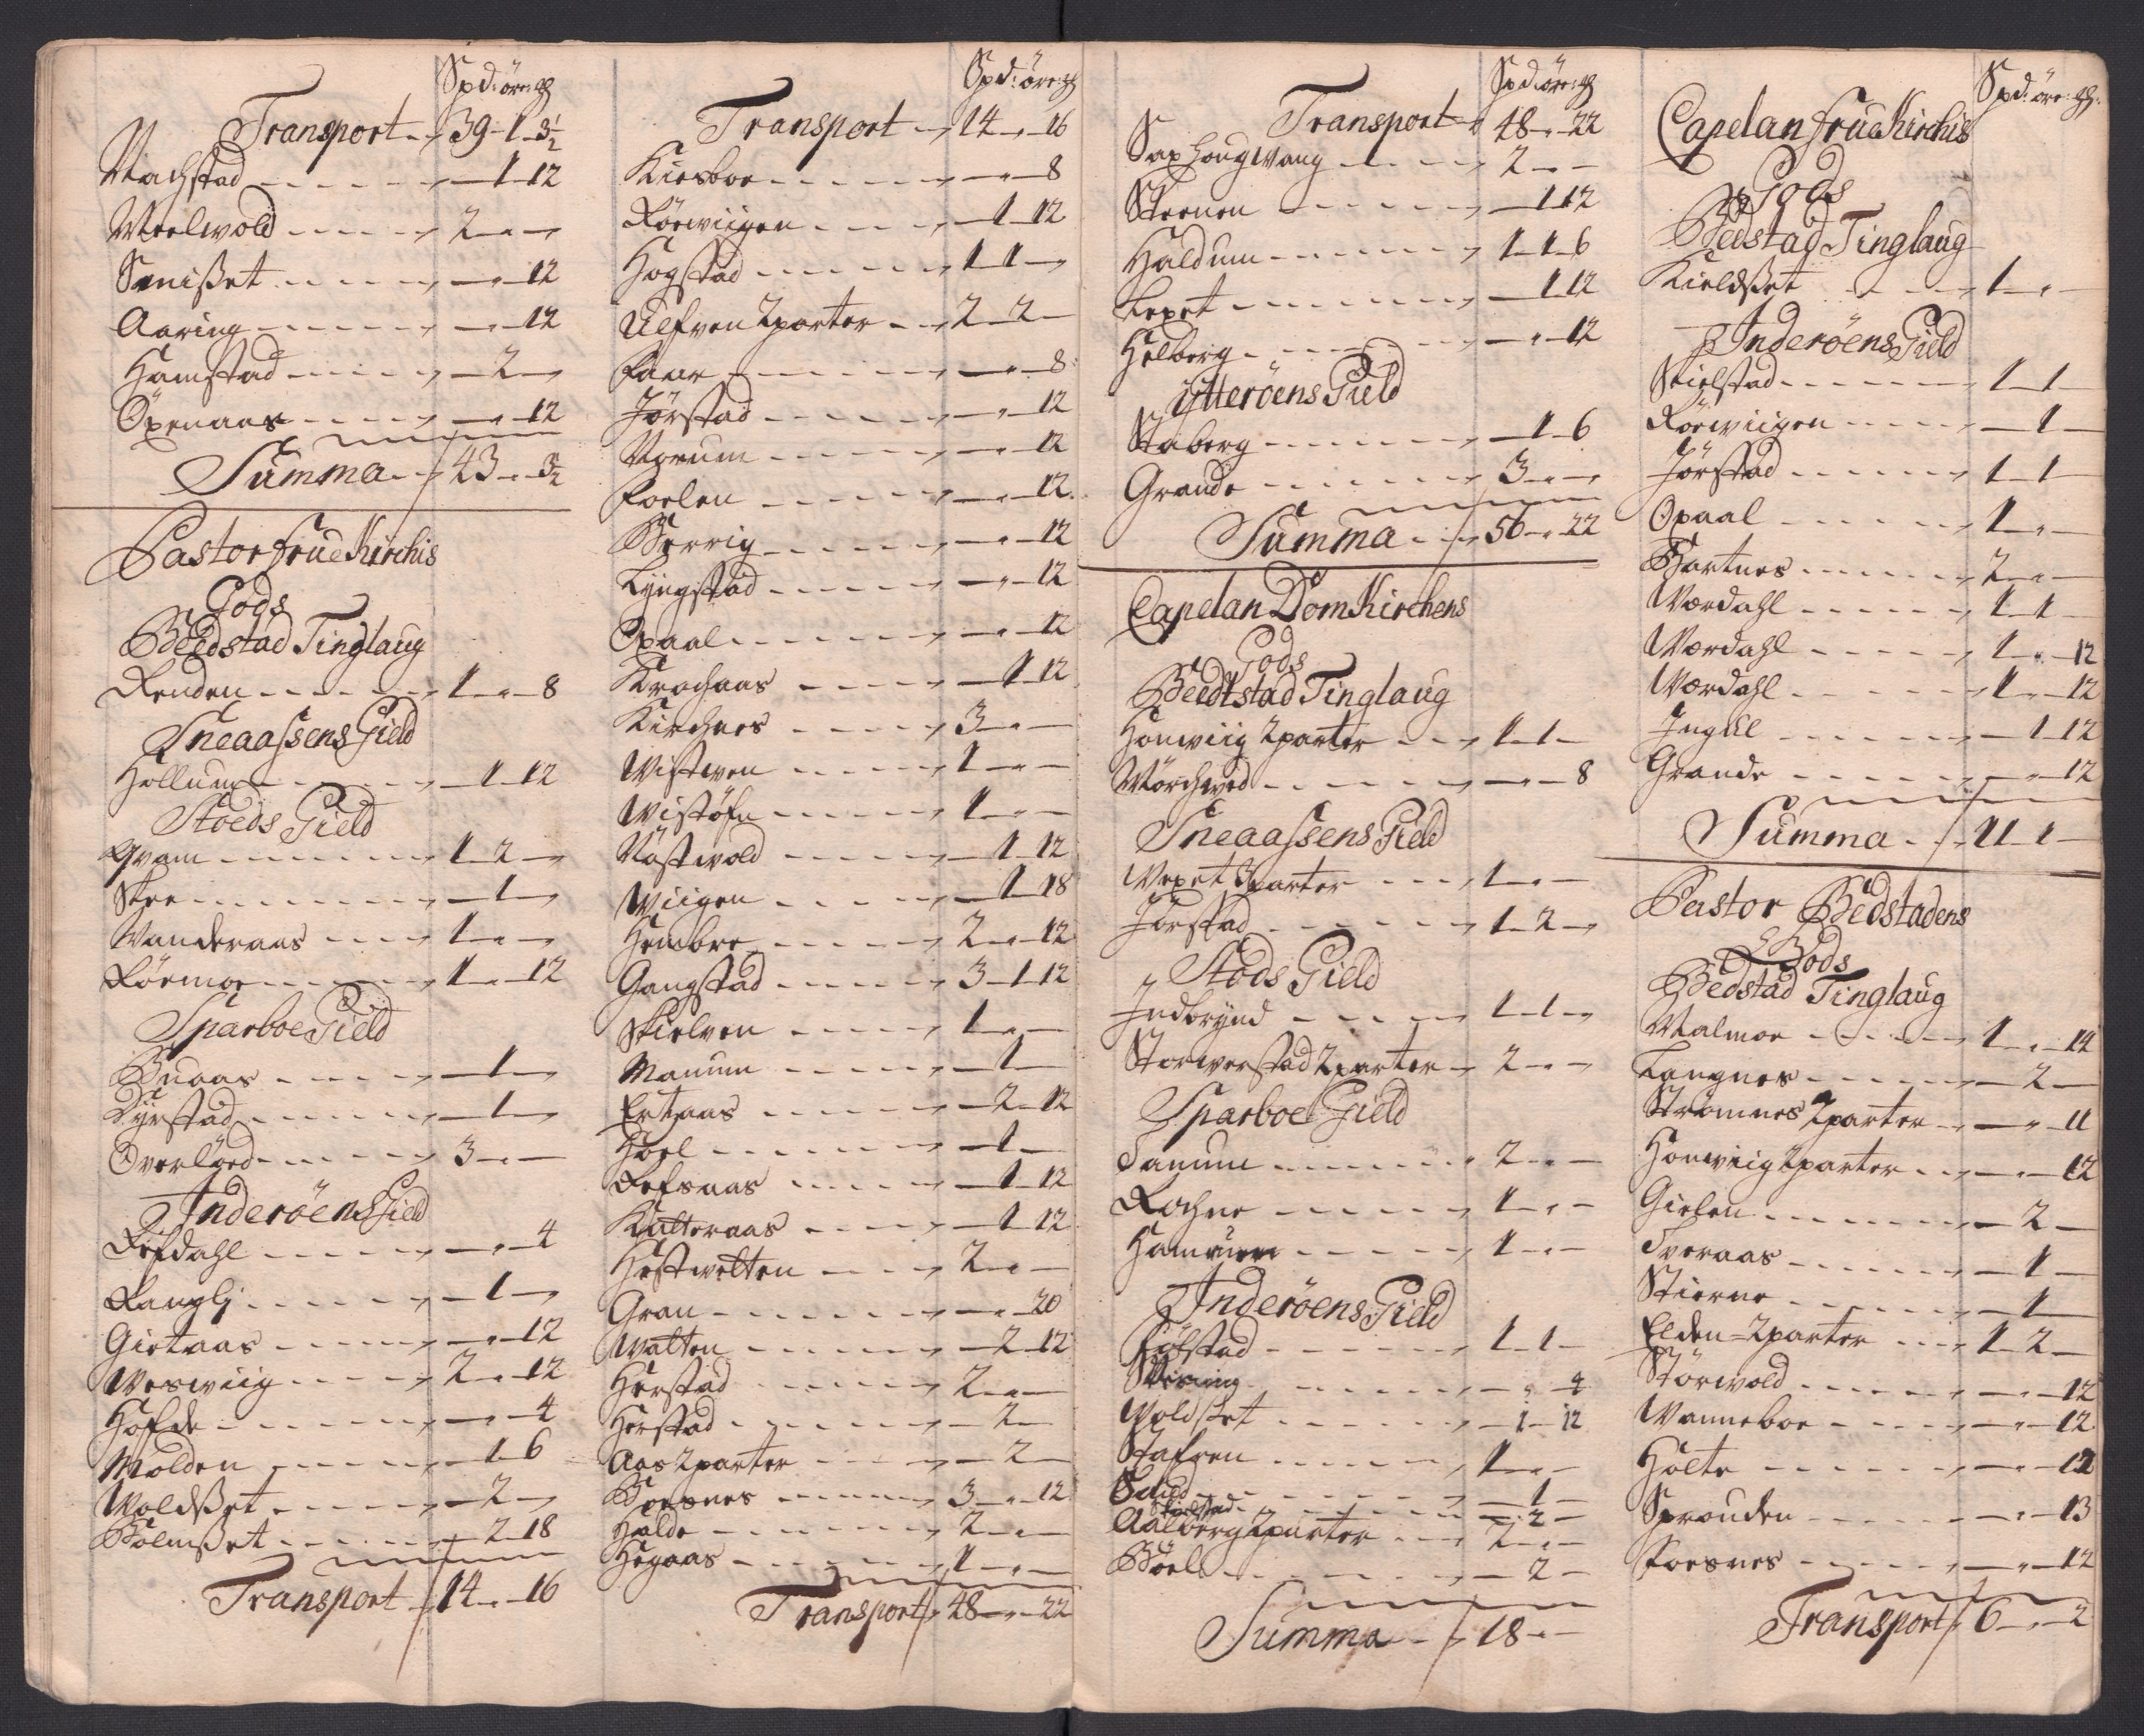 Spd: öre: 
Transport 39 - 1 - 3½
Machstad - 1 - 12
Meelwold 2 - -
Sænißet - - 12
Aaring - - 12
Hamstad - 2 -
Öxenaas - - 12
Summa 43 - - 3½
Pastor frue Kirchis
Gods
Beedstad Tinglaug
Renden 1 - - 8
Sneaassens Gield
Hollum - 1 - 12
Stoeds Gield
Qvam 1 - 2 -
Skee - 1 -
Wanderaas 1 - -
Röemoe 1 - - 12
Sparboe Gield
Buaas - 1 -
Dyrstad - 1 -
Overlöed 3 - -
Inderöens Gield
Refdahl - - 4
Langlj - 1 -
Gietaas - - 12
Weswiig 2 - - 12
Hofde - - 4
Molden - 1 - 6
Woldßet - 2 -
Bolmßet - 2 - 18
Transport 14 - - 16
Spd: öre: 
Transport 14 - - 16
Kiesboe - - 8
Röewiigen - 1 - 12
Hogstad 1 - 1 -
Ulfven 2 parter 2 - 2 -
Faar - - 8
Jörstad - - 12
Norum - - 12
Foelen - - 12
Berrig - - 12
Lyngstad - - 12
Opaal - - 12
Krogaas - 1 - 12
Kirchnes 3 - -
Wistwen 1 - -
Wistöfn 1 - -
Nöstwold - 1 - 12
Wiigen - 1 - 18
Hembre 2 - - 12
Gangstad 3 - 1 - 12
Skielven 1 - -
Manum - 1 -
Ertzaas - 2 - 12
Hoel - 1 -
Refsaas - 1 - 12
Kalteraas - 1 - 12
Hestwelten 2 - -
Gran - - 20
Walten - 2 - 12
Herstad 2 - -
Herstad - 2 -
Aas 2 parter - 2 -
Boesnes 3 - - 12
Halde 2 - -
Hegaas 1 - -
Transport 48 - - 22
Spd: öre: 
Transport 48 - - 22
Saxhougwang 2 - -
Steenen - 1 - 12
Haldum 1 - 1 - 6
Lexet - 1 - 12
Helberg - - 12
Ytteröens Gield
Staberg - 1 - 6
Grande 3 - -
Summa 56 - - 22
Capelan Dom Kirchens
Gods
Beedtstad Tinglaug
Honwiig 2 parter 1 - 1 -
Mörchwed - - 8
Sneaassens Gield
Wexet 2 parter 1 - -
Jörstad 1 - 2 -
Stods Gield
Indbrynd 1 - 1 -
Storwerstad 2 parter 2 - -
Sparboe Gield
Sanum 2 - -
Rochne 1 - -
Hamrum 1 - -
Inderöens Gield
Fölstad 1 - 1 -
- - 4
Woldset - 1 - 12
Stafren 1 - -
Sund - 1 -
Skielstad - 2 -
Aalberg 2 parter 2 - -
Böel - 2 -
Summa 18 - -
Spd: öre: 
Capelan frue Kirchis
Gods
Bedstad Tinglaug
Kieldßet 1 - -
Inderöens Gield
Skielstad 1 - 1
Röewiigen - 1 -
Jörstad 1 - 1
Opaal 1 - -
Bartnes 2 - -
Wærdahl 1 - 1
Wærdahl 1 - - 12
Wærdahl 1 - - 12
Ingul - 1 - 12
Grande - - 12
Summa 11 - 1 -
Pastor Bedstadens
Gods
Bedstad Tinglaug
Malmoe 1 - - 14
Langnes - 2 -
Strömnes 2 parter - - 11
Honwiig 2 parter - - 12
Gielen - 2 -
Tveraas - 1 -
Stierne - 1
Elden 2 parter 1 - 2 -
Störwold - - 12
Wanneboe - - 12
Holte - - 12
Sprouden - - 13
Foesnes - - 12
Transport 6 - - 2